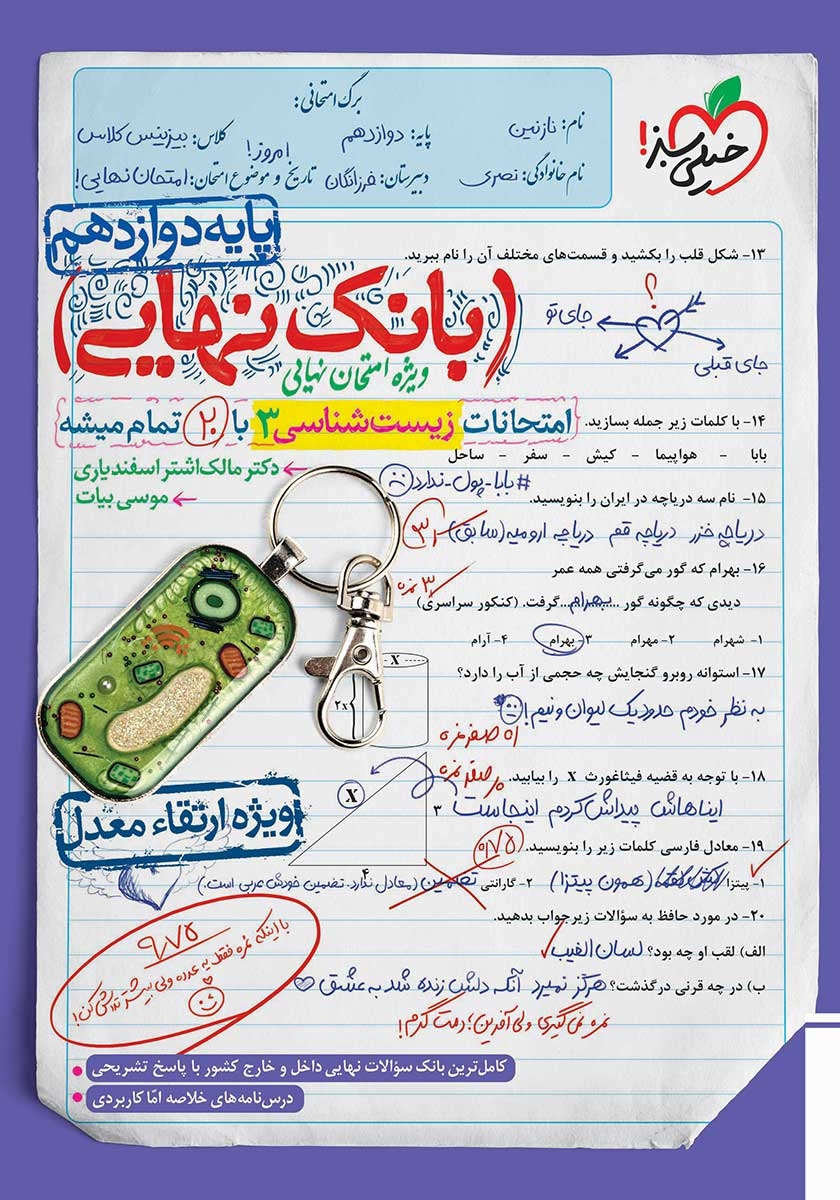 برگ امتحانی:
نام: نازنین پایه: دوازدهم کلاس: بیزینس کلاس
نام خانوادگی: نصری دبیرستان: فرزانگان تاریخ و موضوع امتحان: امروز! امتحان نهایی!
خیلی سبز!
پایه دوازدهم
۱۳- شکل قلب را بکشید و قسمت‌های مختلف آن را نام ببرید.
(بانک نهایی)
ویژه امتحان نهایی
؟
جای تو
جای قبلی
امتحانات زیست‌شناسی ۳ با ۲۰ تمام میشه
دکتر مالک‌اشتر اسفندیاری
موسی بیات
۱۴- با کلمات زیر جمله بسازید.
بابا - هواپیما - کیش - سفر - ساحل
#بابا-پول-ندارد
۱۵- نام سه دریاچه در ایران را بنویسید.
دریاچه خزر دریاچه قم دریاچه ارومیه (سابق)
۱۶- بهرام که گور می‌گرفتی همه عمر
دیدی که چگونه گور ....بهرام....گرفت. (کنکور سراسری)
۳ نمره
۱- شهرام ۲- مهرام ۳- بهرام ۴- آرام
۱۷- استوانه روبرو گنجایش چه حجمی از آب را دارد؟
X
۲x
به نظر خودم حدود یک لیوان و نیم!
۱۸- با توجه به قضیه فیثاغورث X را بیابید.
X
۳
۴
ایناهاش پیداش کردم اینجاست
ویژه ارتقاء معدل
۱۹- معادل فارسی کلمات زیر را بنویسید.
۰/۷۵
۱- پیتزا (همون پیتزا) ۲- گارانتی تضمین (معادل ندارد. تضمین خودش عربی است.)
۲۰- در مورد حافظ به سؤالات زیر جواب بدهید.
الف) لقب او چه بود؟ لسان الغیب
ب) در چه قرنی درگذشت؟ هرگز نمیرد آنکه دلش زنده شد به عشق
نمره نمی‌گیری ولی آفرین؛ دمت گرم!
۹/۷۵
با اینکه نمره فقط یه عدده ولی بیشتر تلاش کن!
کامل‌ترین بانک سؤالات نهایی داخل و خارج کشور با پاسخ تشریحی
درس‌نامه‌های خلاصه امّا کاربردی